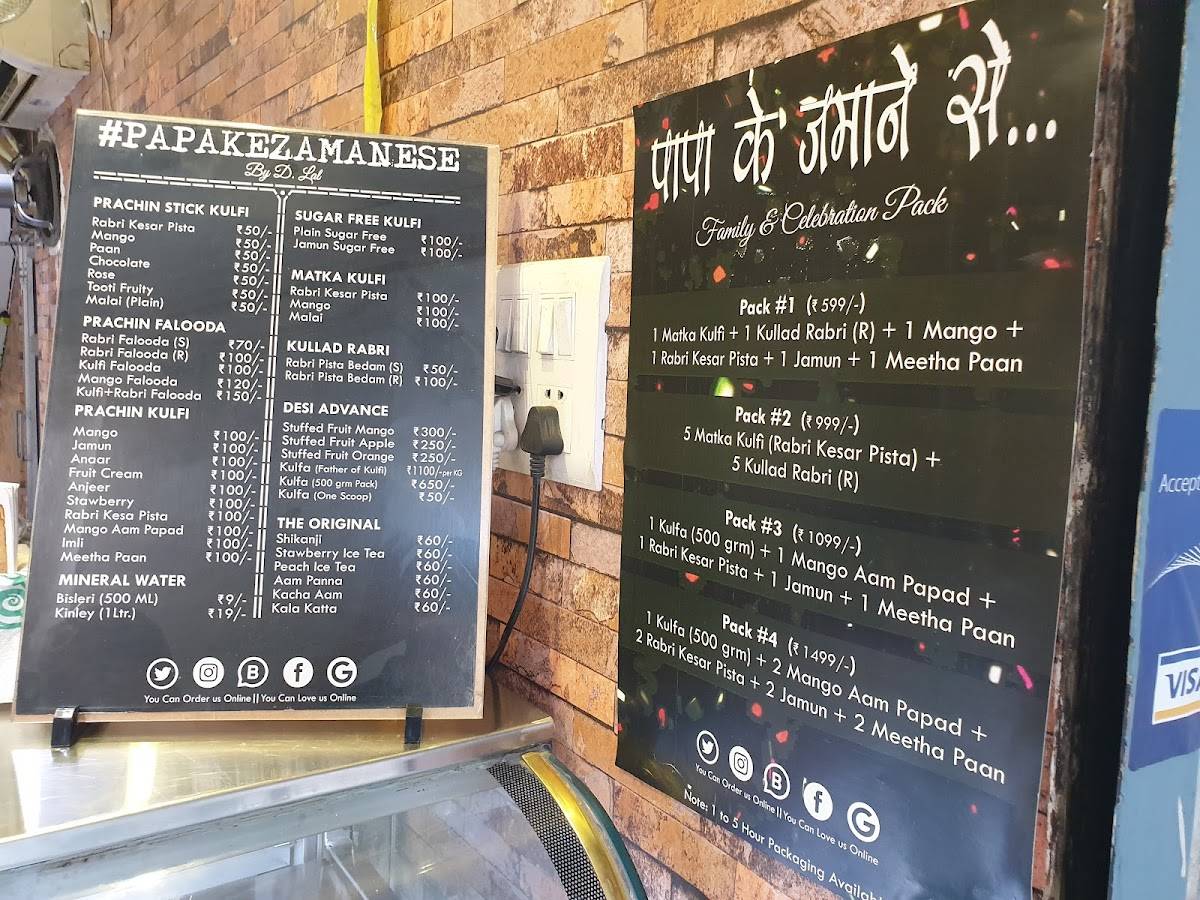 #PAPAKEZAMANESE
By D. Lal
PRACHIN STICK KULFI
Rabri Kesar Pista ₹50/-
Mango ₹50/-
Paan ₹50/-
Chocolate ₹50/-
Rose ₹50/-
Tooti Fruity ₹50/-
Malai (Plain) ₹50/-
PRACHIN FALOODA
Rabri Falooda (S) ₹70/-
Rabri Falooda (R) ₹100/-
Kulfi Falooda ₹100/-
Mango Falooda ₹120/-
Kulfi+Rabri Falooda ₹150/-
PRACHIN KULFI
Mango ₹100/-
Jamun ₹100/-
Anaar ₹100/-
Fruit Cream ₹100/-
Anjeer ₹100/-
Stawberry ₹100/-
Rabri Kesa Pista ₹100/-
Mango Aam Papad ₹100/-
Imli ₹100/-
Meetha Paan ₹100/-
MINERAL WATER
Bisleri (500 ML) ₹9/-
Kinley (1Ltr.) ₹19/-
SUGAR FREE KULFI
Plain Sugar Free ₹100/-
Jamun Sugar Free ₹100/-
MATKA KULFI
Rabri Kesar Pista ₹100/-
Mango ₹100/-
Malai ₹100/-
KULLAD RABRI
Rabri Pista Bedam (S) ₹50/-
Rabri Pista Bedam (R) ₹100/-
DESI ADVANCE
Stuffed Fruit Mango ₹300/-
Stuffed Fruit Apple ₹250/-
Stuffed Fruit Orange ₹250/-
Kulfa (Father of Kulfi) ₹1100/-per KG
Kulfa (500 grm Pack) ₹650/-
Kulfa (One Scoop) ₹50/-
THE ORIGINAL
Shikanji ₹60/-
Stawberry Ice Tea ₹60/-
Peach Ice Tea ₹60/-
Aam Panna ₹60/-
Kacha Aam ₹60/-
Kala Katta ₹60/-
You Can Order us Online || You Can Love us Online
पापा के ज़माने से...
Family & Celebration Pack
Pack #1 (₹ 599/-)
1 Matka Kulfi + 1 Kullad Rabri (R) + 1 Mango +
1 Rabri Kesar Pista + 1 Jamun + 1 Meetha Paan
Pack #2 (₹ 999/-)
5 Matka Kulfi (Rabri Kesar Pista) +
5 Kullad Rabri (R)
Pack #3 (₹ 1099/-)
1 Kulfa (500 grm) + 1 Mango Aam Papad +
1 Rabri Kesar Pista + 1 Jamun + 1 Meetha Paan
Pack #4 (₹ 1499/-)
1 Kulfa (500 grm) + 2 Mango Aam Papad +
2 Rabri Kesar Pista + 2 Jamun + 2 Meetha Paan
You Can Order us Online || You Can Love us Online
Note: 1 to 5 Hour Packaging Available
Accept
VISA